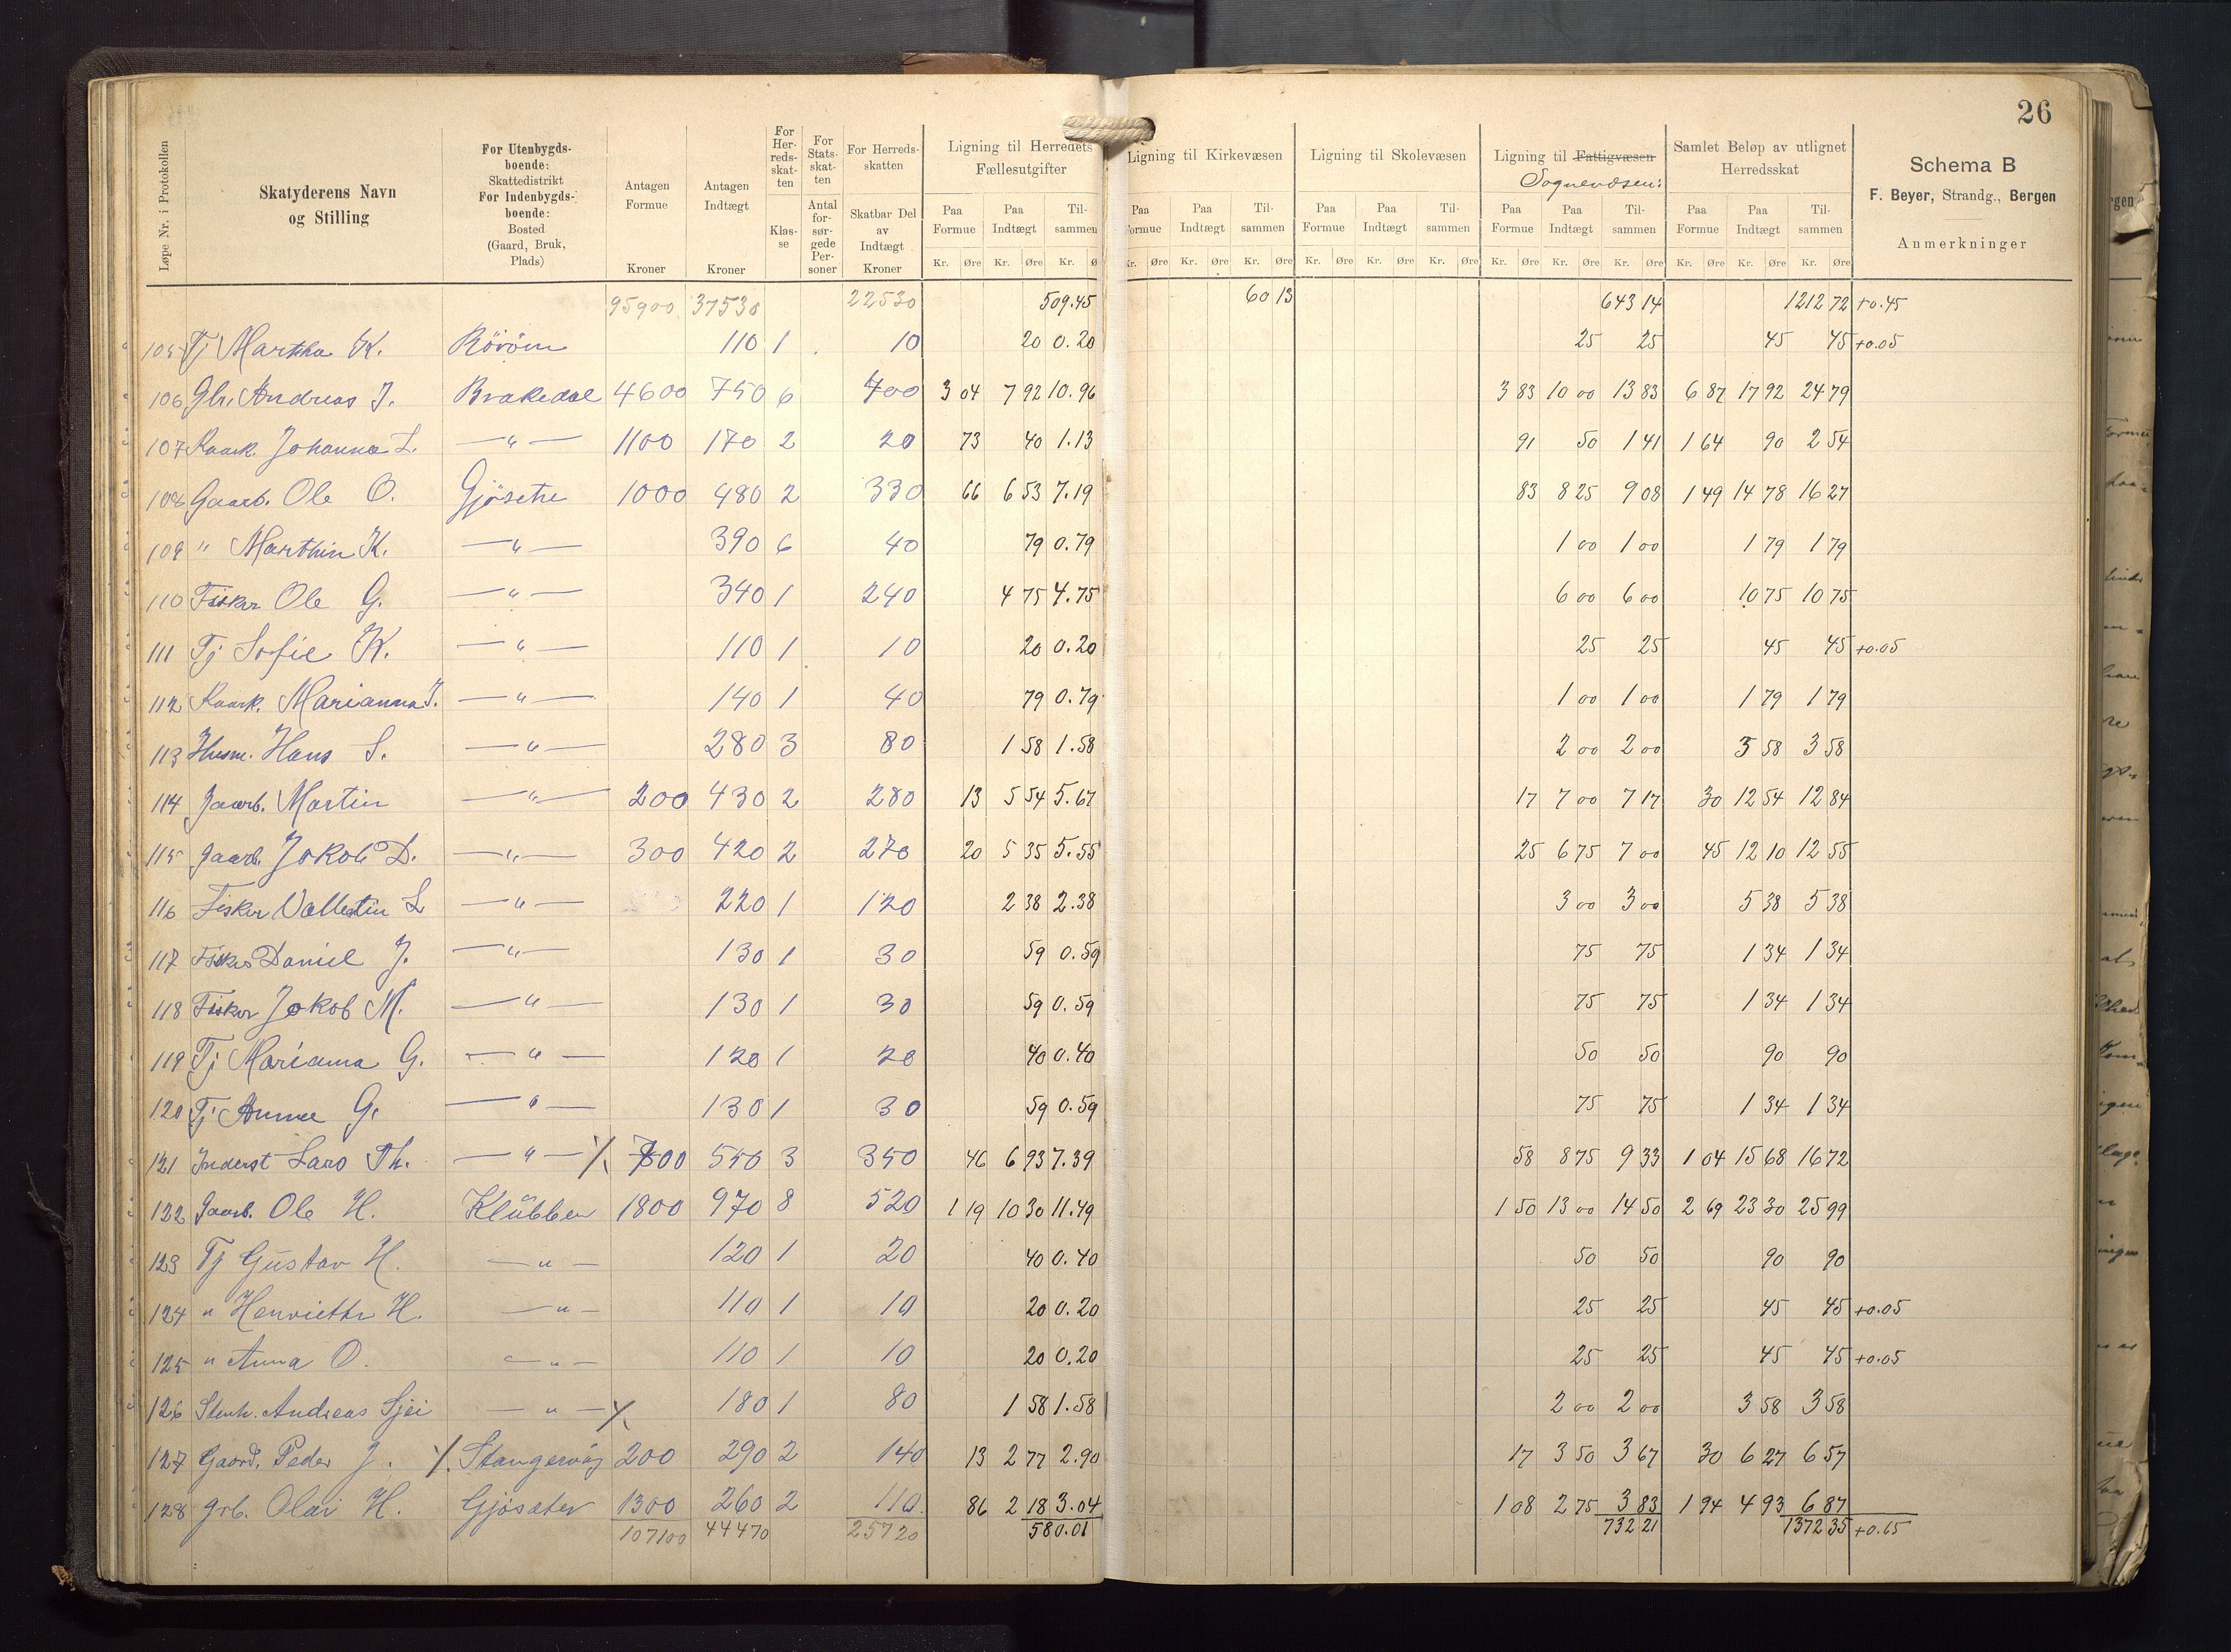 26
Løpe Nr. i Protokollen
Skatyderens Navn og Stilling
For Utenbygdsboende: Skattedistrikt For Indenbygdsboende: Bosted (Gaard, Bruk, Plads)
Antagen Formue Kroner
Antagen Indtægt Kroner
For Herredsskatten Klasse
For Statsskatten Antal forsørgede Personer
For Herredsskatten Skatbar Del av Indtægt Kroner
Ligning til Herredets Fællesutgifter
Ligning til Kirkevæsen
Ligning til Skolevæsen
Ligning til Fattigvæsen Sognevæsen:
Samlet Beløp av utlignet Herredsskat
Schema B
F. Beyer, Strandg., Bergen
Anmerkninger
Paa Formue Paa Indtægt Tilsammen Paa Formue Paa Indtægt Tilsammen Paa Formue Paa Indtægt Tilsammen Paa Formue Paa Indtægt Tilsammen Paa Formue Paa Indtægt Tilsammen
Kr. Øre Kr. Øre Kr. Ø Kr. Øre Kr. Øre Kr. Øre Kr. Øre Kr. Øre Kr. Øre Kr. Øre Kr. Øre Kr. Øre Kr. Øre Kr. Øre Kr. Øre
95900 37530 22530 509.45 60 13 643 14 1212 72 +0.45
105 Tj Martha K. 110 1 10 20 0.20 25 25 45 45 +0.05
106 Gbr. Andreas J. Brakedal 4600 750 6 400 3 04 7 92 10.96 3 83 10 00 13 83 6 87 17 92 24 79
107 Kaark. Johanna L. — " — 1100 170 2 20 73 40 1.13 91 50 1 41 1 64 90 2 54
108 Gaarb. Ole O. Gjösetre 1000 480 2 330 66 6 53 7.19 83 8 25 9 08 1 49 14 78 16 27
109 " Marthin K. — " — 390 6 40 79 0.79 1 00 1 00 1 79 1 79
110 Fisker Ole G. — " — 340 1 240 4 75 4.75 6 00 6 00 10 75 10 75
111 Tj Sofie K. — " — 110 1 10 20 0.20 25 25 45 45 +0.05
112 Kaark. Marianna J. — " — 140 1 40 79 0.79 1 00 1 00 1 79 1 79
113 Husm. Hans S. — " — 280 3 80 1 58 1.58 2 00 2 00 3 58 3 58
114 Gaarb. Martin — " — 200 430 2 280 13 5 54 5.67 17 7 00 7 17 30 12 54 12 84
115 Gaarb. Jakob D. — " — 300 420 2 270 20 5 35 5.55 25 6 75 7 00 45 12 10 12 55
116 Fisker Vallestin L — " — 220 1 120 2 38 2.38 3 00 3 00 5 38 5 38
117 Fisker Daniel J. — " — 130 1 30 59 0.59 75 75 1 34 1 34
118 Fisker Jakob M. — " — 130 1 30 59 0.59 75 75 1 34 1 34
119 Tj Marianna G. — " — 120 1 20 40 0.40 50 50 90 90
120 Tj Anna G. — " — 130 1 30 59 0.59 75 75 1 34 1 34
121 Inderst Lars Th. — " — 700 550 3 350 46 6 93 7.39 58 8 75 9 33 1 04 15 68 16 72
122 Gaarb. Ole H. Klübben 1800 970 8 520 1 19 10 30 11.49 1 50 13 00 14 50 2 69 23 30 25 99
123 Tj Gustav H. — " — 120 1 20 40 0.40 50 50 90 90
124 " Henriette H. — " — 110 1 10 20 0.20 25 25 45 45 +0.05
125 " Anna O. — " — 110 1 10 20 0.20 25 25 45 45 +0.05
126 Stenh. Andreas — " — 180 1 80 1 58 1.58 2 00 2 00 3 58 3 58
127 Gaard. Peder J. Stangervåg 200 290 2 140 13 2 77 2.90 17 3 50 3 67 30 6 27 6 57
128 grb. Olai H. Gjösæter 1300 260 2 110. 86 2 18 3.04 1 08 2 75 3 83 1 94 4 93 6 87
107100 44470 25720 580.01 732 21 1372 35 +0.65